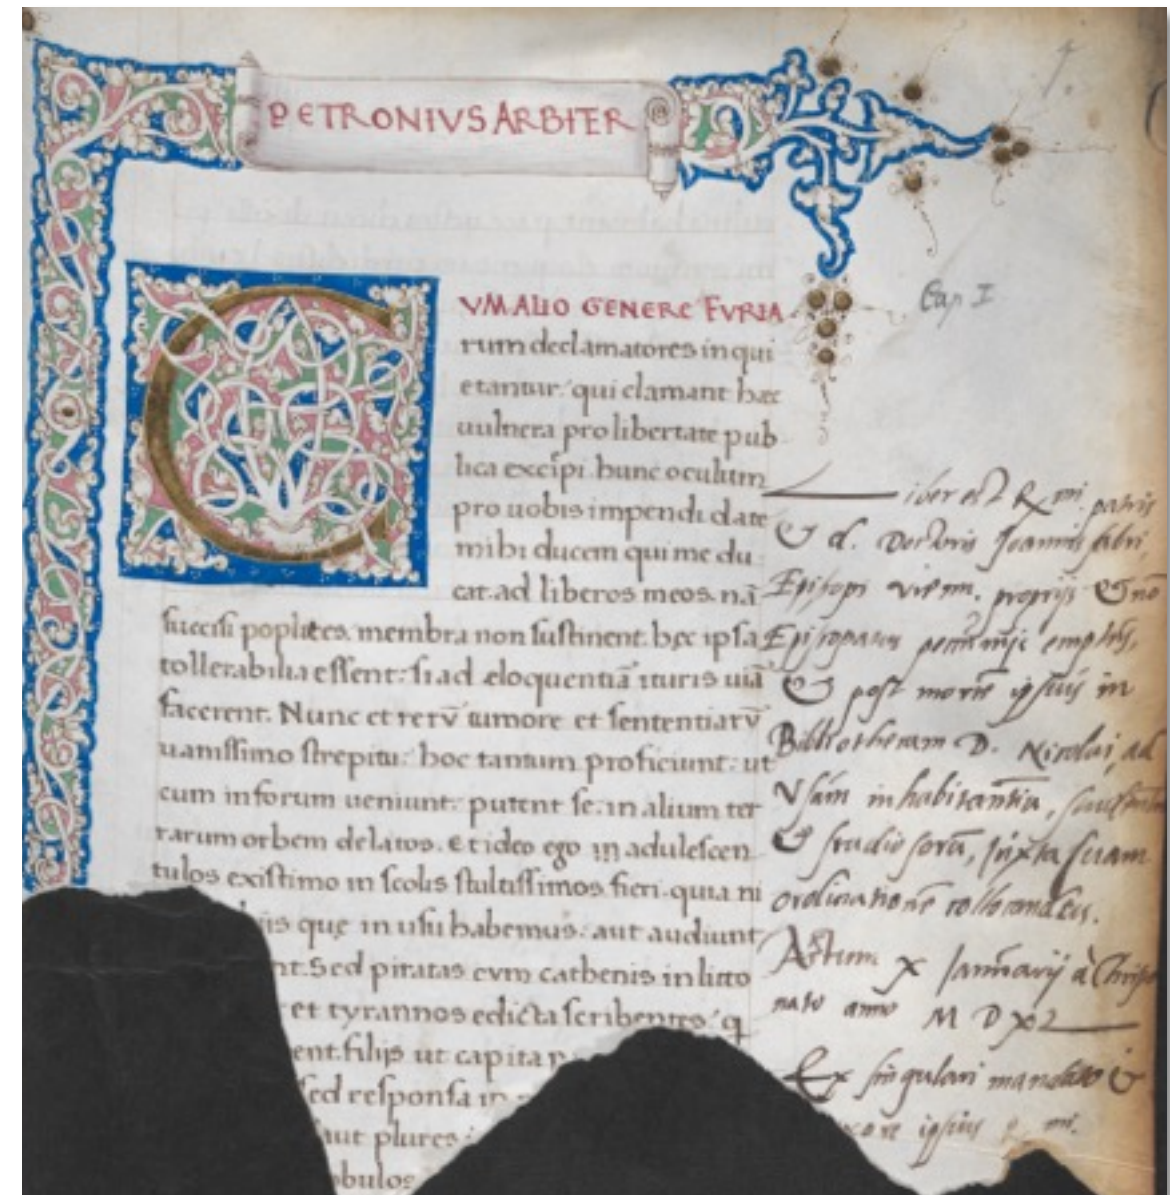 PETRONIVS ARBITER
CVM ALIO GENERE FVRIA
rum declamatores in qui
etantur: qui clamant hęc
uulnera pro libertate pub
lica excępi. hunc oculum
pro uobis impendi date
mihi ducem qui me du
cat ad liberos meos. nā
succisi poplites membra non sustinent. hęc ipsa
tollerabilia essent: si ad eloquentiā ituris uiā
facerent. Nunc et rerū tumore et sententiarū
uanissimo strepitu: hoc tantum proficiunt: ut
cum in forum ueniunt: putent se in alium ter
rarum orbem delatos. et ideo ego in adulescen
tulos existimo in scolis stultissimos fieri. quia ni
iis quę in usu habemus: aut audiunt
nt. Sed piratas cvm cathenis in litto
et tyrannos edicta scribentes: q
ent filijs ut capita
sed responsa in
aut plures
obulos
Cap I
iber est Rmi patris
& d. Doctoris Joannis fabri,
Episcopi vienn. propriis & nō
Episcopatus emptus,
& post mortē ipsius in
Bibliothecam D. Nicolai, ad
Vsum inhabitantiū,
& studiosorū, juxta suam
ordinationē collocandus.
Actum X Januarij à Christo
nato anno M D XL
Ex singulari mandato &
ipsius R mi.